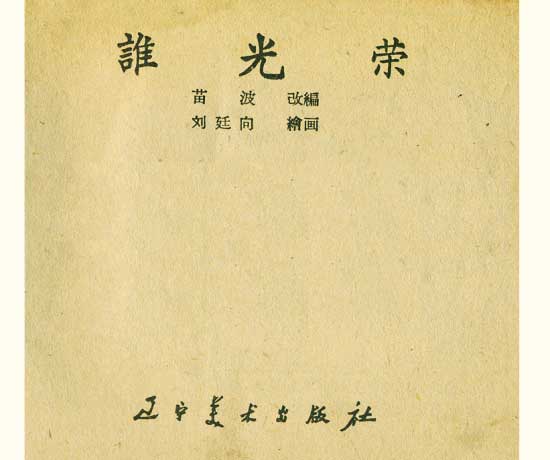 誰光荣
苗波 改編
刘廷向 繪画
辽宁美术出版社